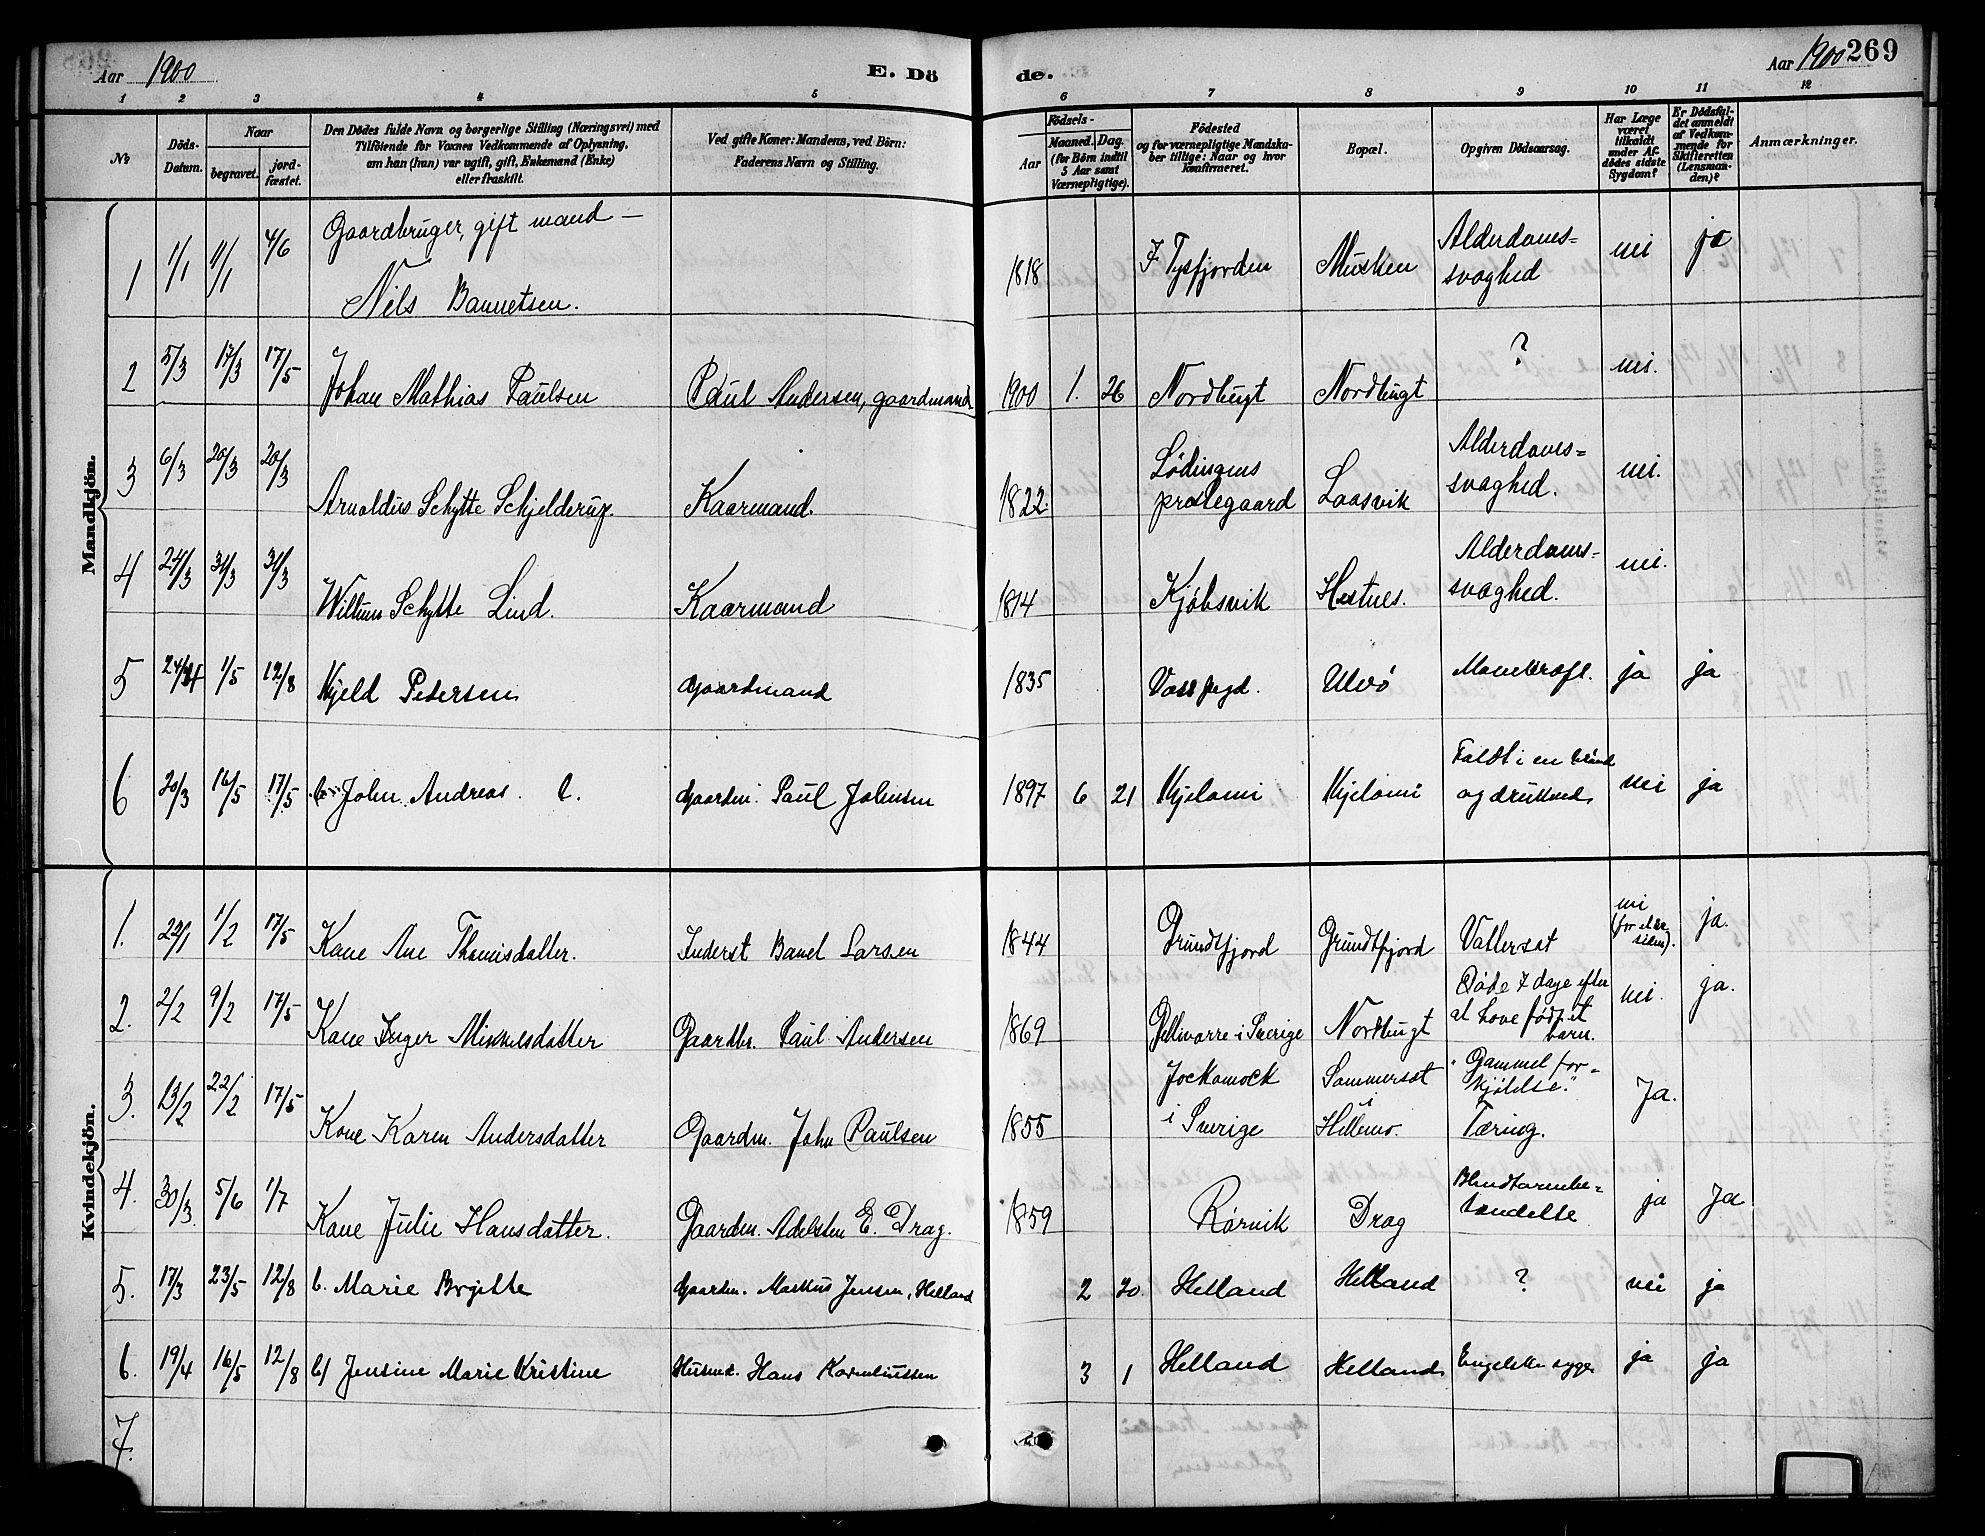 Aar 1900
E. Dö
de.
Aar 1900 269
1 2 3 4 5 6 7 8 9 10 11 12
No
Döds-Datum.
Naar
begravet. jord-fæstet.
Den Dödes fulde Navn og borgerlige Stilling (Næringsvei) med
Tilföiende for Voxnes Vedkommende af Oplysning,
om han (hun) var ugift, gift, Enkemand (Enke)
eller fraskilt.
Ved gifte Koner: Mandens, ved Börn:
Faderens Navn og Stilling.
Födsels-
Aar Maaned. Dag.
(for Börn indtil
5 Aar samt
Værnepligtige).
Födested
og for værnepligtige Mandska-
ber tillige: Naar og hvor
konfirmeret.
Bopæl.
Opgiven Dödsaarsag.
Har Læge
været
tilkaldt
under Af-
dödes sidste
Sygdom?
Er Dödsfal-
det anmeldt
af Vedkom-
mende for
Skifteretten
(Lensman-
den)?
Anmærkninger.
Mandkjön.
1 1/1 11/1 4/6 Gaardbruger, gift mand —
Nils Bannetsen. 1818 I Tysfjorden Musken Alderdoms=
svaghed nei ja
2 5/3 17/3 17/5 Johan Mathias Paulsen Paul Andersen, gaardmand 1900 1. 26 Nordbugt Nordbugt ? nei.
3 6/3 20/3 20/3 Arnoldus Schytte Schjelderup. Kaarmand. 1822. Lødingens
prestegaard Laasvik Alderdoms=
svaghed. nei.
4 24/3 31/3 31/3 Schytte Lind. Kaarmand 1814 Kjøbsvik Hestnes. Alderdoms=
svaghed. nei.
5 1/5 12/8 Kjeld Pedersen Gaardmand 1835 Ulvø ja ja
6 20/3 16/5 17/5 John Andreas Gaardm. Paul Johnsen 1897 6 21 Kjelomi Kjelomi Faldt i en brønd
og druknede nei ja
Kvindekjön.
1. 22/1 1/2 17/5 Kone Ane Thomisdatter. Inderst Banel Larsen 1844 Grundtfjord Grundtfjord Vattersot nei ja.
2. 2/2 9/2 17/5 Kone Inger Mikkelsdatter Gaardbr. Paul Andersen 1869 Gellivarre i Sverige Nordbugt Døde 7 dage efter
at have født et
barn. nei. ja.
3. 13/2 22/2 17/5 Kone Karen Andersdatter Gaardm. John Paulsen 1855 Jockamock
i Sverige Sommerset
i
Hellemo. "Gammel for=
kjølelse."
Tæring. Ja.
4. 30/3. 5/6 1/7 Kone Julie Hansdatter. Gaardm. Adelsten E. Drag. 1859 Rørvik Drag Blindtarmbe=
tændelse ja Ja
5. 17/3 23/5 12/8 b. Marie Brgitte Gaardm. Markus Jensen, Helland 2 20 Helland Helland ? nei ja
6. 19/4 16/5 12/8 b) Jensine Marie Kristine Husmd. Hans Korneliussen 3 1 Helland Helland Engelske syge ja ja
7.